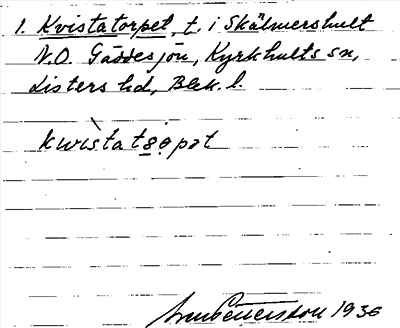 1. Kvistatorpet, t. i Skälmershult
N.O. Gåddesjön, Kyrkhults sn,
Listers hd, Blek. l.
kwìstatsopat
1936